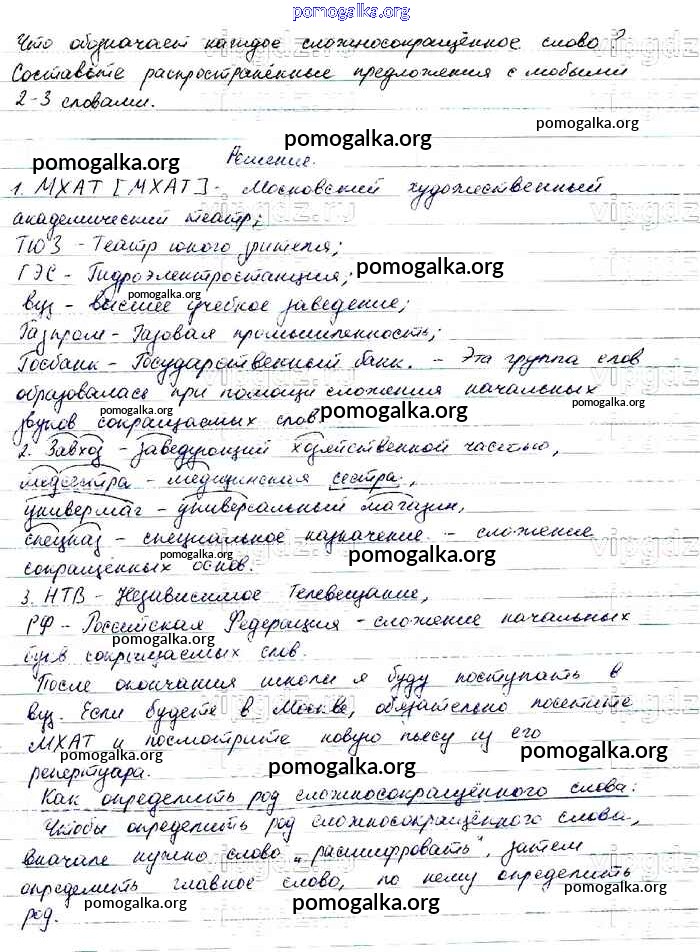 pomogalka.org
Что обозначает каждое сложносокращённое слово?
Составьте распространённые предложения с любыми
2-3 словами.
pomogalka.org
pomogalka.org
Решение.
1. МХАТ [МХАТ] - Московский художественный
академический театр;
ТЮЗ - Театр юного зрителя;
ГЭС - Гидроэлектростанция;
pomogalka.org
вуз - высшее учебное заведение;
pomogalka.org
Газпром - Газовая промышленность;
Госбанк - Государственный банк. - Эта группа слов
образовалась при помощи сложения начальных
pomogalka.org
pomogalka.org
pomogalka.org
звуков сокращаемых слов.
2. Завхоз - заведующий хозяйственной частью,
медсестра - медицинская сестра,
универмаг - универсальный магазин,
спецназ - специальное назначение. - сложение
pomogalka.org
pomogalka.org
сокращённых основ.
3. НТВ - Независимое Телевещание,
РФ - Российская Федерация - сложение начальных
pomogalka.org
букв сокращаемых слов.
После окончания школы я буду поступать в
вуз. Если будете в Москве, обязательно посетите
МХАТ и посмотрите новую пьесу из его
pomogalka.org
репертуара.
pomogalka.org
Как определить род сложносокращённого слова:
Чтобы определить род сложносокращённого слова,
вначале нужно слово „расшифровать", затем
определить главное слово, по нему определить
pomogalka.org
род.
pomogalka.org
pomogalka.org
vipgdz.ru